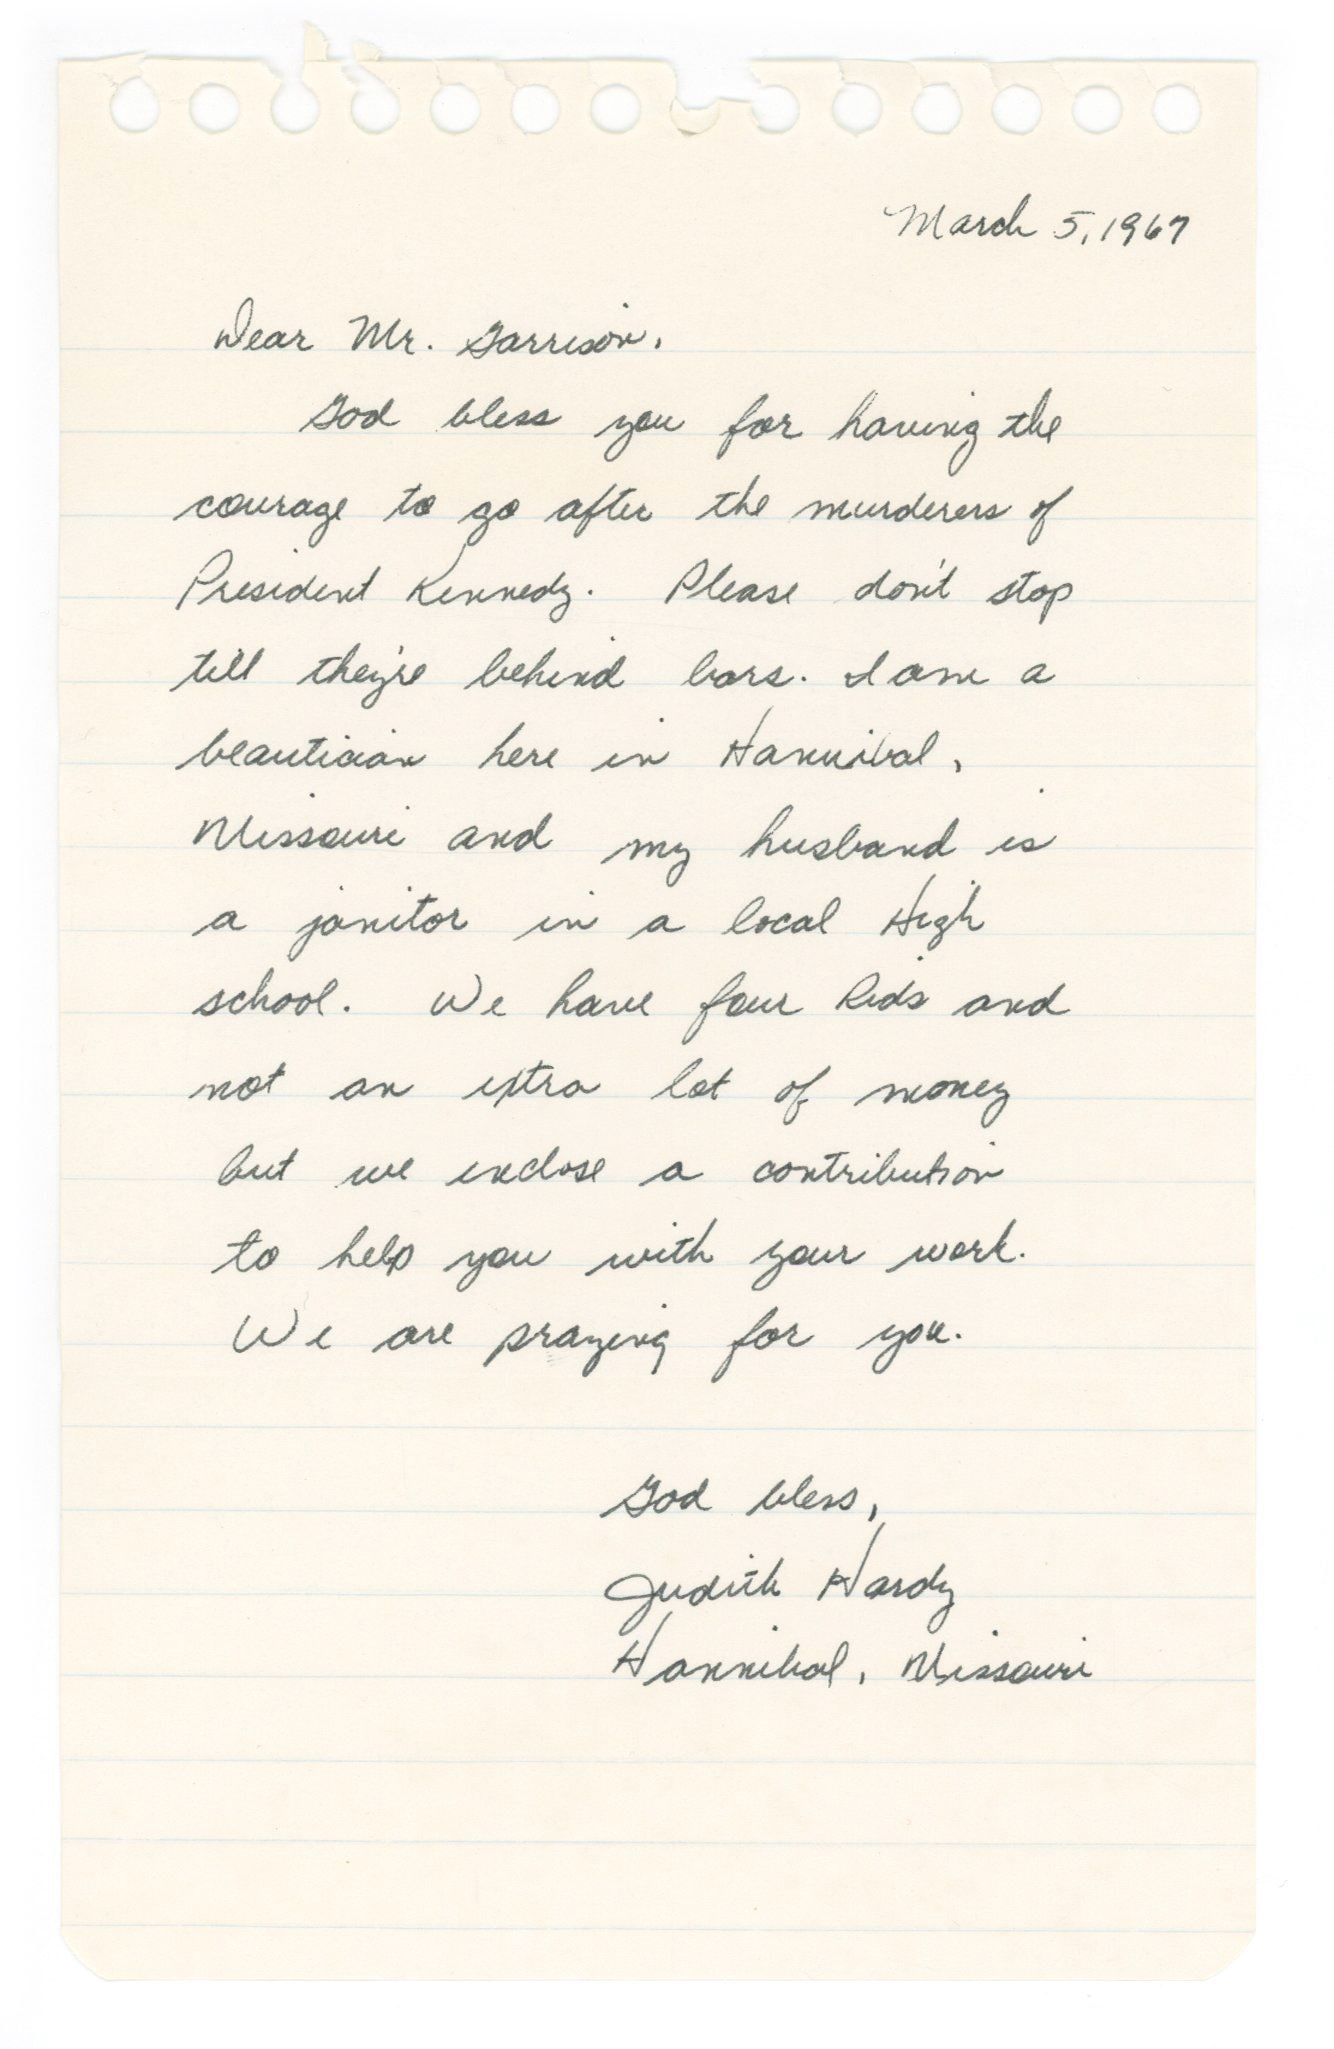 March 5, 1967
Dear Mr. Garrison,
God bless you for having the
courage to go after the murderers of
President Kennedy. Please don't stop
till they're behind bars. I am a
beautician here in Hannibal,
Missouri and my husband is
a janitor in a local High
school. We have four kids and
not an extra lot of money
but we enclose a contribution
to help you with your work.
We are praying for you.
God bless,
Judith Hardy
Hannibal, Missouri